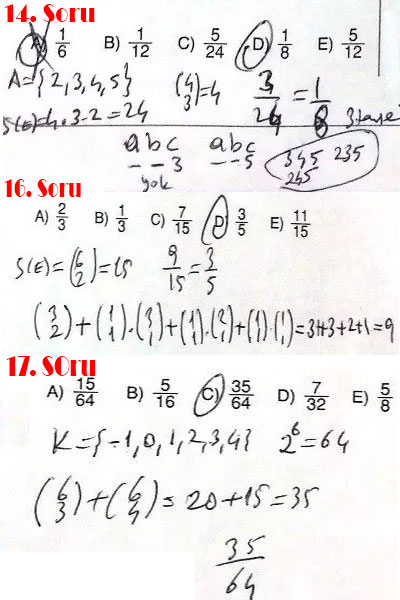 14. Soru
A) 1/6 B) 1/12 C) 5/24 D) 1/8 E) 5/12
A={2,3,4,5} (4 3)=4 3/24 = 1/8
S(E)=4.3.2=24 3 tane
abc abc
_ _ 3 _ _ 5 345 235
yok 245
16. Soru
A) 2/3 B) 1/3 C) 7/15 D) 3/5 E) 11/15
S(E)=(6 2)=15 9/15=3/5
(3 2)+(1 1).(3 1)+(1 1).(2 1)+(1 1).(1 1)=3+3+2+1=9
17. SOru
A) 15/64 B) 5/16 C) 35/64 D) 7/32 E) 5/8
K={-1,0,1,2,3,4} 2⁶=64
(6 3)+(6 4)=20+15=35
35/64